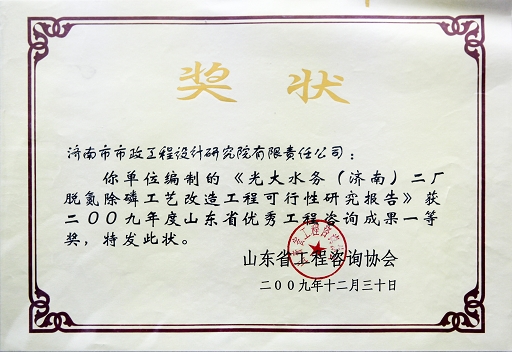 奖 状
济南市市政工程设计研究院有限责任公司：
你单位编制的《光大水务（济南）二厂
脱氮除磷工艺改造工程可行性研究报告》获
二〇〇九年度山东省优秀工程咨询成果一等
奖，特发此状。
山东省工程咨询协会
二〇〇九年十二月三十日